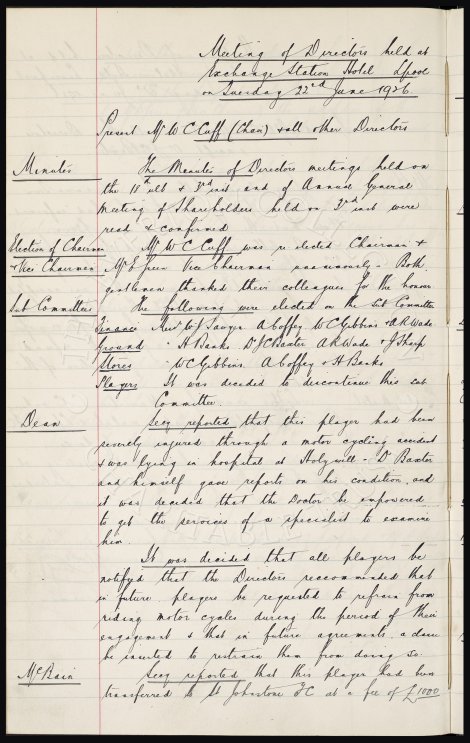 Meeting of Directors held at
Exchange Station Hotel Lpool
on Tuesday 22nd June 1926
Present Mr W C Cuff (Chair) & all other Directors
Minutes The Minutes of Directors meetings held on
the 18th ult & 3rd inst and of Annual General
Meeting of Shareholders held on 3rd inst were
read & confirmed
Election of Chairman Mr W C Cuff was re elected Chairman &
& Vice Chairman Mr E Green Vice Chairman unanimously - Both
gentlemen thanked their colleagues for the honour
Sub Committees The following were elected on the Sub Committees
Finance Messrs W J Sawyer A Coffey W C Gibbins & A R Wade
Ground " H Banks Dr J C Baxter A R Wade & J Sharp
Stores " W C Gibbins A Coffey & H Banks
Players It was decided to discontinue this sub
Committee.
Dean Secy reported that this player had been
severely injured through a motor cycling accident
& was lying in hospital at Holywell - Dr Baxter
and himself gave reports on his condition and
it was decided that the Doctor be empowered
to get the services of a specialist to examine
him.
It was decided that all players be
notified that the Directors recommended that
in future players be requested to refrain from
riding motor cycles during the period of their
engagement & that in future agreements, a clause
be inserted to restrain them from doing so.
McBain Secy reported that this player had been
transferred to St Johnstone FC at a fee of £1000